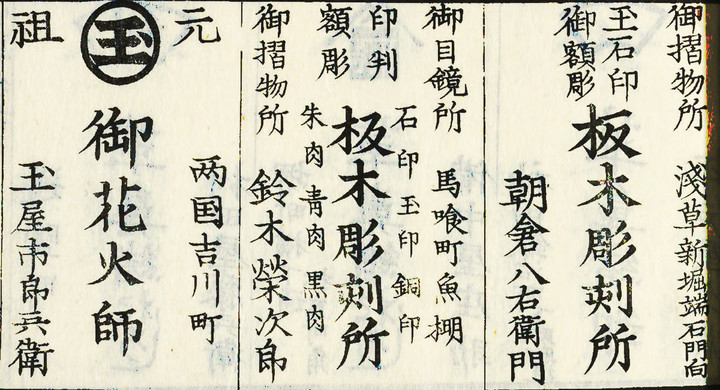 御摺物所
淺草新堀端石門向
玉石印
御額彫
板木彫刻所
朝倉八右衛門
御目鏡所
馬喰町魚棚
印判
額彫
石印玉印銅印
板木彫刻所
朱肉青肉黒肉
御摺物所
鈴木榮次郎
元
祖
玉
两国吉川町
御花火師
玉屋市郎兵衛